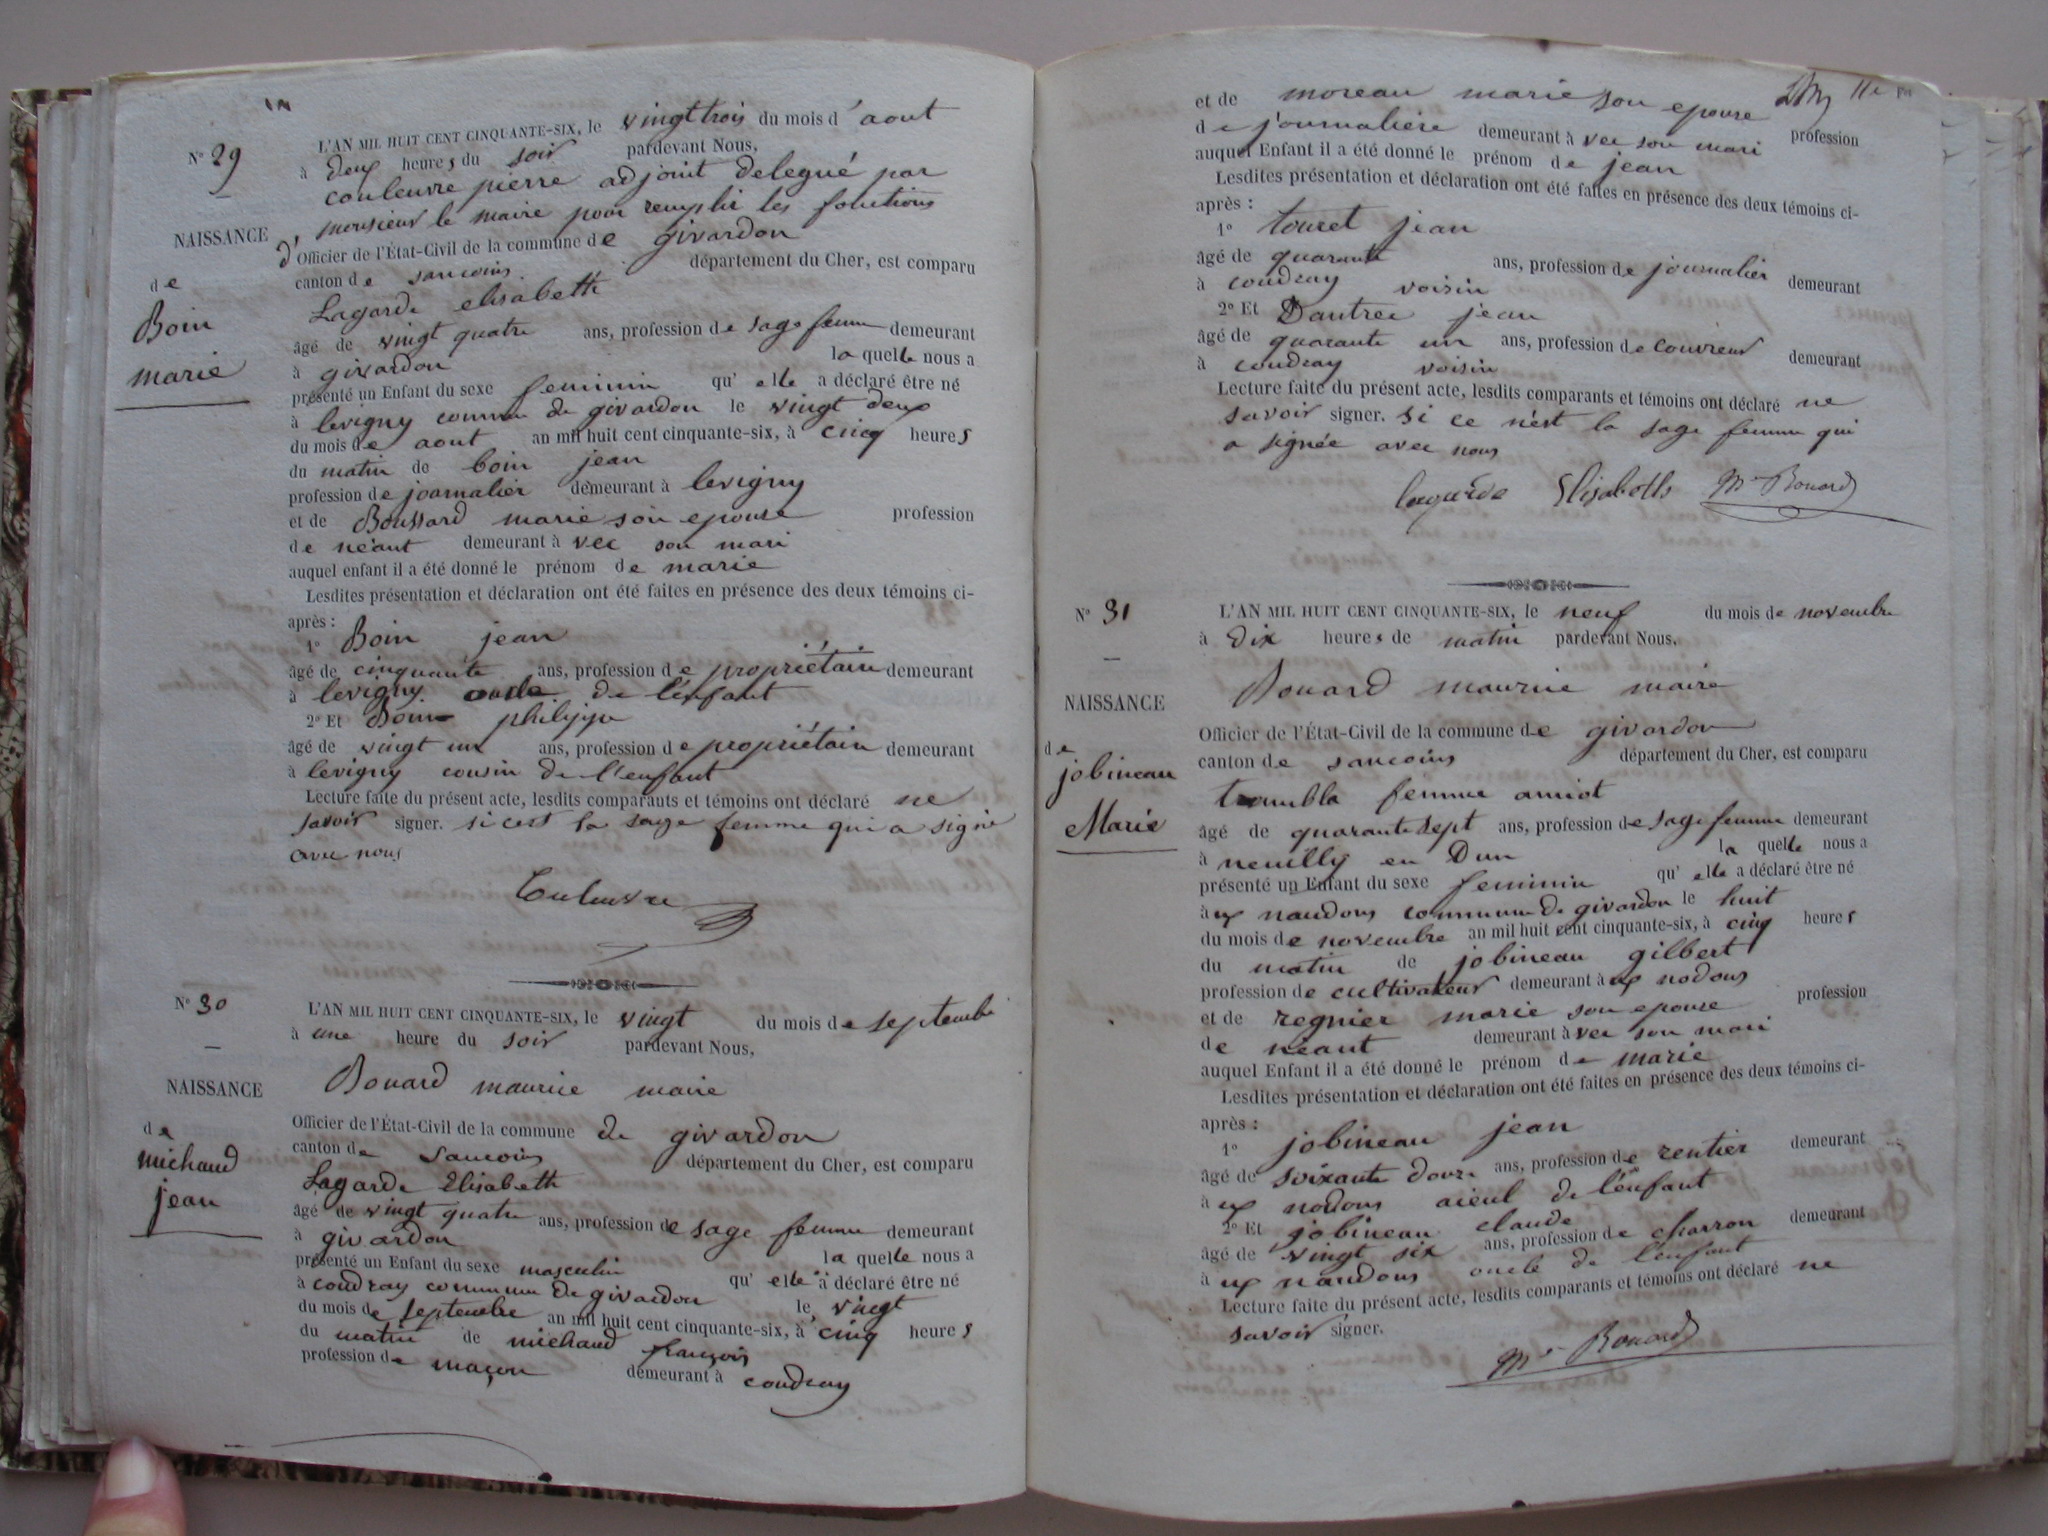 N° 29
NAISSANCE
de
Boin
marie
L'AN MIL HUIT CENT CINQUANTE-SIX, le vingt trois du mois d'aout
à deux heures du soir pardevant Nous,
couleuvre pierre adjoint delegué par
monsieur le maire pour remplir les fonctions
d'Officier de l'État-Civil de la commune de givardon
canton de sancoins département du Cher, est comparu
Lagarde elisabeth
âgé de vingt quatre ans, profession de sage femme demeurant
à givardon la quelle nous a
présenté un Enfant du sexe feminin qu'elle a déclaré être né
à levigny commune de givardon le vingt deux
du mois de aout an mil huit cent cinquante-six, à cinq heures
du matin de boin jean
profession de journalier demeurant à levigny
et de Boussard marie son epouse profession
de néant demeurant à vec son mari
auquel enfant il a été donné le prénom de marie
Lesdites présentation et déclaration ont été faites en présence des deux témoins ci-
après :
1° Boin jean
âgé de cinquante ans, profession de propriétaire demeurant
à levigny oncle de l'enfant
2° Et Boin philippe
âgé de vingt un ans, profession de propriétaire demeurant
à levigny cousin de l'enfant
Lecture faite du présent acte, lesdits comparants et témoins ont déclaré ne
savoir signer. si cest la sage femme qui a signé
avec nous
Couleuvre
N° 30
NAISSANCE
de
michaud
jean
L'AN MIL HUIT CENT CINQUANTE-SIX, le vingt du mois de septembre
à une heure du soir pardevant Nous,
Bouard maurice maire
Officier de l'État-Civil de la commune de givardon
canton de sancoins département du Cher, est comparu
Lagarde Elisabeth
âgé de vingt quatre ans, profession de sage femme demeurant
à givardon la quelle nous a
présenté un Enfant du sexe masculin qu'elle a déclaré être né
à coudray commune de givardon le vingt
du mois de septembre an mil huit cent cinquante-six, à cinq heures
du matin de michaud françois
profession de maçon demeurant à coudray
et de moreau marie son epouse profession
de journalière demeurant à vec son mari
auquel Enfant il a été donné le prénom de jean
Lesdites présentation et déclaration ont été faites en présence des deux témoins ci-
après :
1° touret jean
âgé de quarante ans, profession de journalier demeurant
à coudray voisin
2° Et Dautree jean
âgé de quarante un ans, profession de couvreur demeurant
à coudray voisin
Lecture faite du présent acte, lesdits comparants et témoins ont déclaré ne
savoir signer. si ce n'est la sage femme qui
a signée avec nous
lagarde Elisabeth M. Bouard
N° 31
NAISSANCE
de
jobineau
Marie
L'AN MIL HUIT CENT CINQUANTE-SIX, le neuf du mois de novembre
à dix heures de matin pardevant Nous,
Bouard maurice maire
Officier de l'État-Civil de la commune de givardon
canton de sancoins département du Cher, est comparu
trambla femme amiot
âgé de quarante sept ans, profession de sage femme demeurant
à neuilly en Dun la quelle nous a
présenté un Enfant du sexe feminin qu'elle a déclaré être né
à ux naudons commune de givardon le huit
du mois de novembre an mil huit cent cinquante-six, à cinq heures
du matin de jobineau gilbert
profession de cultivateur demeurant à ux nodons
et de regnier marie son epouse profession
de néant demeurant à vec son mari
auquel Enfant il a été donné le prénom de marie
Lesdites présentation et déclaration ont été faites en présence des deux témoins ci-
après :
1° jobineau jean
âgé de soixante douze ans, profession de rentier demeurant
à ux nodons aieul de l'enfant
2° Et jobineau claude
âgé de vingt six ans, profession de charron demeurant
à ux naudons oncle de l'enfant
Lecture faite du présent acte, lesdits comparants et témoins ont déclaré ne
savoir signer.
M. Bouard